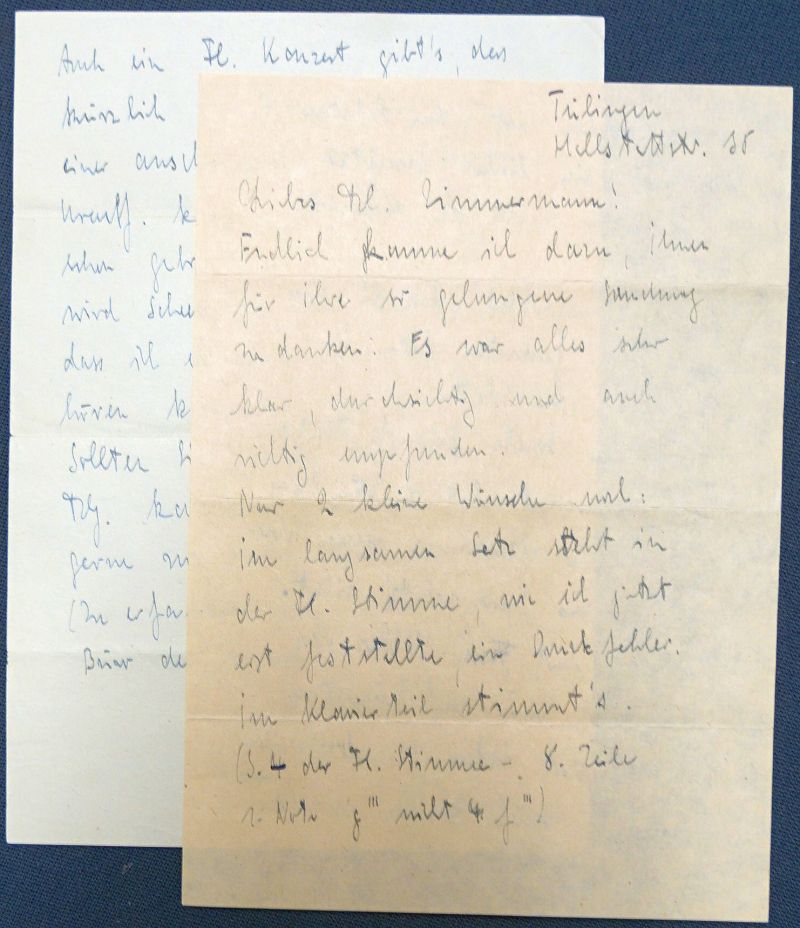 Auch ein Fl. Konzert gibt's, das
kürzlich
einer
Urauff. k
schon
wird
dass ich
hören k
Sollten Si
ka
gerne
(Zu erfa
Büro de
Tübingen
35
Liebes Frl. Zimmermann!
Endlich komme ich dazu, Ihnen
für ihre so gelungene Sendung
zu danken: Es war alles sehr
klar, durchsichtig und auch
richtig empfunden.
Nur 2 kleine Wünsche noch:
im langsamen Satz steht in
der Fl. Stimme, wie ich jetzt
erst feststellte, ein Druckfehler.
im Klavierteil stimmt's.
(S. 4 der Fl. Stimme – 8. Zeile
1. Note g''' nicht f''')